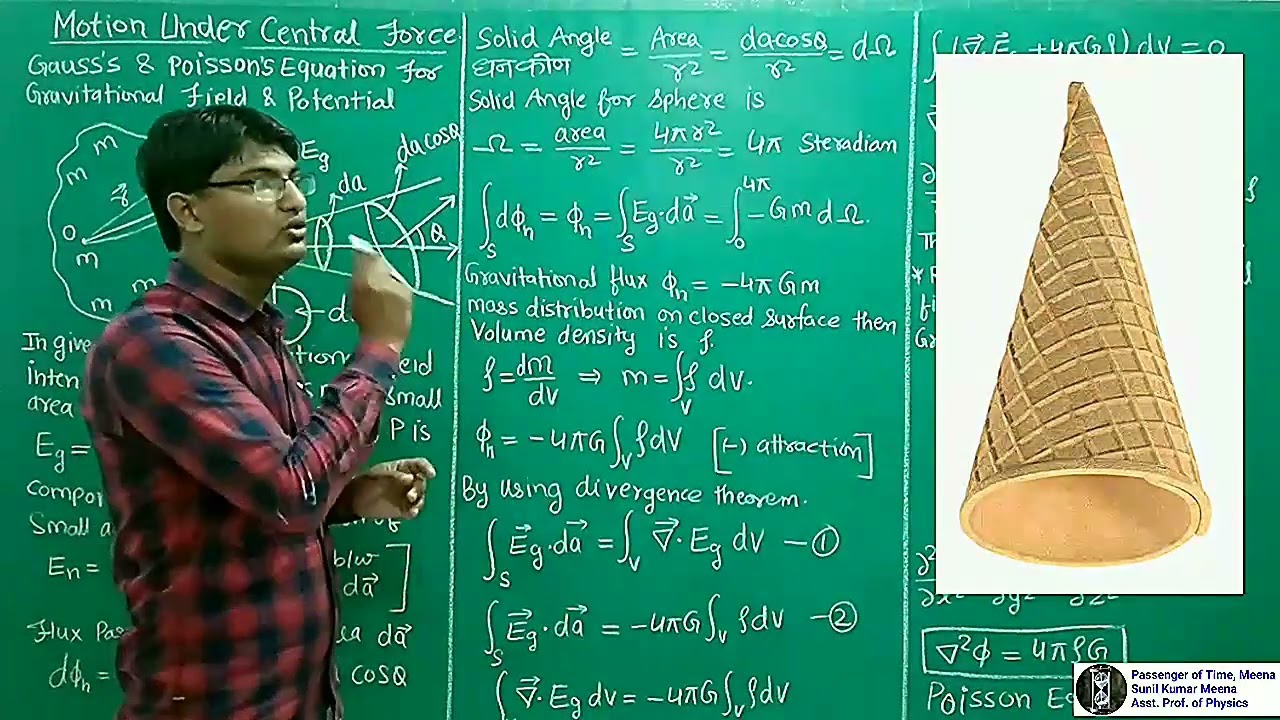 Motion Under Central Force
Gauss's & Poisson's Equation for
Gravitational Field & Potential
m
m
r⃗
O
m
m
m
Eg
da
da cosθ
θ
In give
inten
area
eld
Small
P is
Eg =
compor
Small a
En =
b/w
da⃗ ]
Flux Pas
da⃗
dϕn =
cosθ
Solid Angle = Area/r² = da cosθ/r² = dΩ
घनकोण
Solid Angle for sphere is
Ω = area/r² = 4πr²/r² = 4π Steradian
∫S dϕn = ϕn = ∫S Eg·da⃗ = ∫₀^4π -Gm dΩ.
Gravitational flux ϕn = -4πGm
mass distribution on closed surface then
Volume density is ρ.
ρ = dm/dv ⇒ m = ∫V ρ dv.
ϕn = -4πG ∫V ρdV [(-) attraction]
By using divergence theorem.
∫S E⃗g·da⃗ = ∫V ∇⃗·Eg dv —①
∫S E⃗g·da⃗ = -4πG ∫V ρdv —②
∫ ∇⃗·Eg dv = -4πG ∫V ρdv
∫(∇⃗·E⃗g + 4πGρ) dv = 0
∇²ϕ = 4πρG
Poisson E
Passenger of Time, Meena
Sunil Kumar Meena
Asst. Prof. of Physics